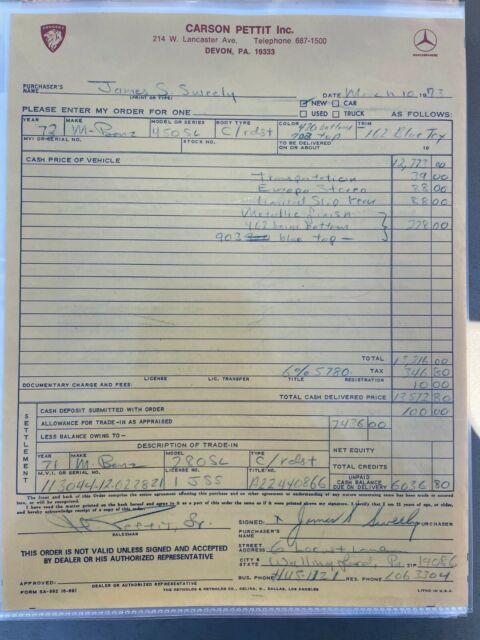 PEUGEOT
CARSON PETTIT Inc.
214 W. Lancaster Ave. Telephone 687-1500
DEVON, PA. 19333
MERCEDES-BENZ
PURCHASER'S NAME James S. Sweely DATE March 10 1973
(PRINT OR TYPE)
PLEASE ENTER MY ORDER FOR ONE NEW CAR USED TRUCK AS FOLLOWS:
YEAR MAKE MODEL OR SERIES BODY TYPE COLOR TRIM
72 M-Benz 450SL C/rdst bottom 903 top 162 Blue Tex
MVI OR SERIAL NO. STOCK NO. TO BE DELIVERED ON OR ABOUT 19
CASH PRICE OF VEHICLE 12,773 00
Transportation 39 00
Europa Stereo 88 00
Limited Slip Rear 88 00
Metallic finish
bottom 228 00
903 blue top
TOTAL 00
6% 5780. TAX 346 80
LICENSE LIC. TRANSFER TITLE REGISTRATION
DOCUMENTARY CHARGE AND FEES: 10 00
TOTAL CASH DELIVERED PRICE 13572 80
SETTLEMENT
CASH DEPOSIT SUBMITTED WITH ORDER 100 00
ALLOWANCE FOR TRADE-IN AS APPRAISED 7436 00
LESS BALANCE OWING TO –
DESCRIPTION OF TRADE-IN NET EQUITY
YEAR MAKE MODEL TYPE TOTAL CREDITS
71 M Benz 280SL C/rdst
M.V.I. OR SERIAL NO. LICENSE NO. TITLE NO. UNPAID CASH BALANCE DUE ON DELIVERY
113044-12-022821 1 JSS A22440866 6036 80
The front and back of this Order comprise the entire agreement affecting this purchase and no other agreement or understanding of any nature concerning same has been made or entered into, or will be recognized.
I have read the matter printed on the back hereof and agree to it as a part of this order the same as if it were printed above my signature. I certify that I am 21 years of age, or older, and hereby acknowledge receipt of a copy of this order.
Pettit, Jr. SIGNED: X James S. Sweely PURCHASER
SALESMAN
PURCHASER'S NAME
THIS ORDER IS NOT VALID UNLESS SIGNED AND ACCEPTED
BY DEALER OR HIS AUTHORIZED REPRESENTATIVE
STREET ADDRESS 6 Locust Lane
CITY & STATE Wallingford, Pa. ZIP 19086
APPROVED: BUS. PHONE RES. PHONE
DEALER OR AUTHORIZED REPRESENTATIVE
FORM SA-892 THE REYNOLDS & REYNOLDS CO., CELINA, O., DALLAS, LOS ANGELES LITHO IN U.S.A.